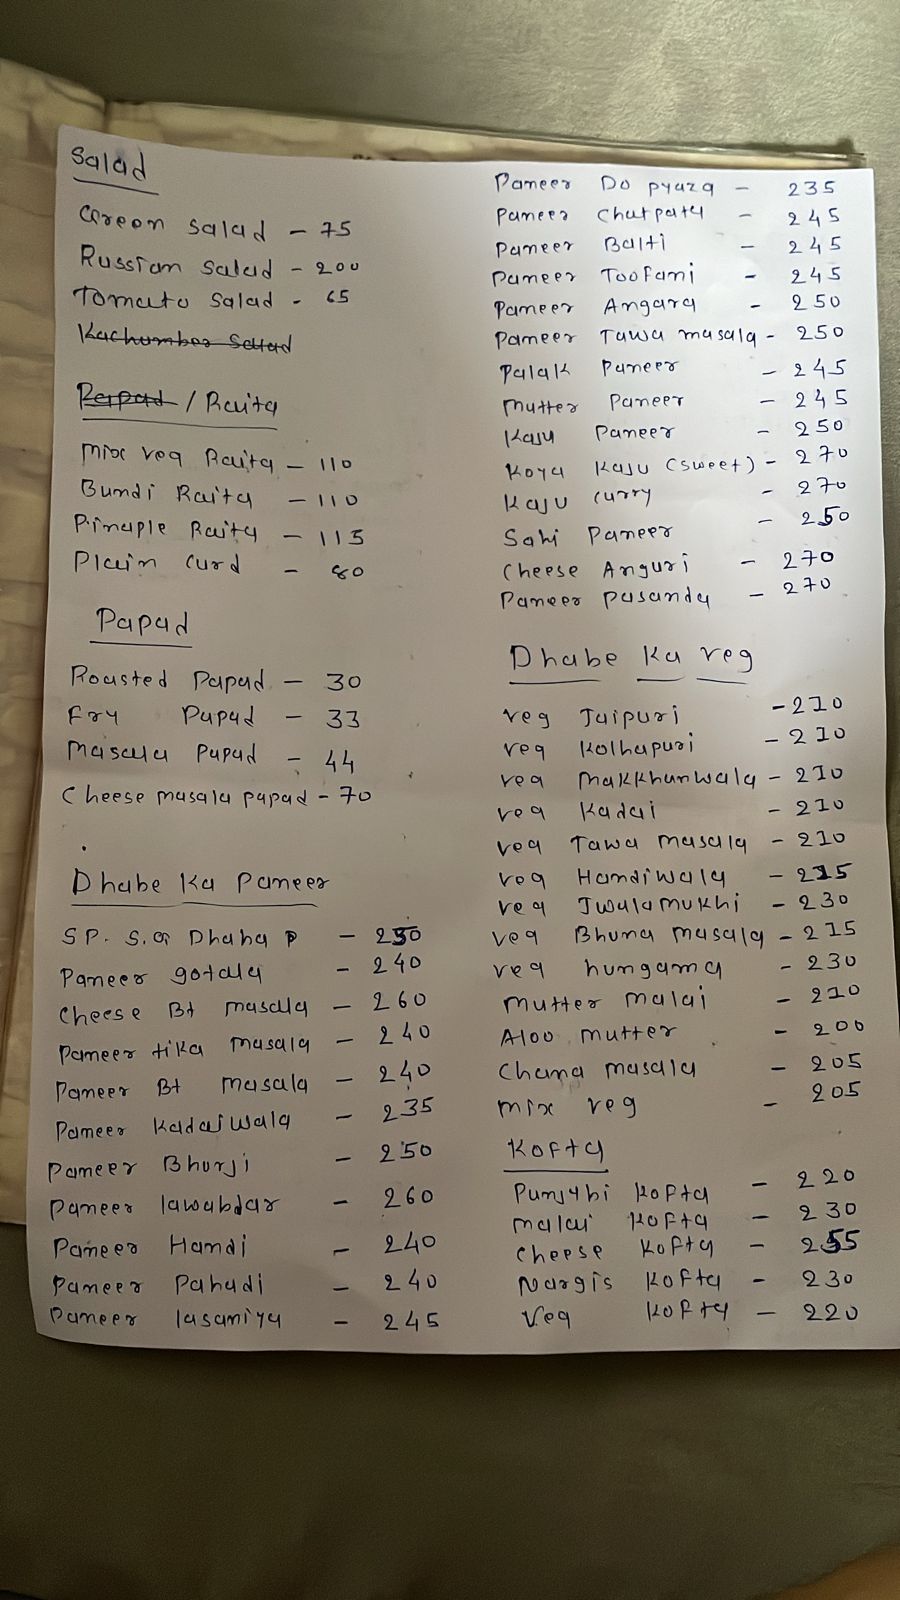 Salad
Green salad - 75
Russian salad - 200
Tomato salad - 65
Kachumber Salad
Papad / Raita
mix veg Raita - 110
Bundi Raita - 110
Pinaple Raita - 115
Plain curd - 80
Papad
Roasted Papad - 30
Fry Papad - 33
Masala Papad - 44
Cheese masala papad - 70
Dhabe Ka Paneer
SP. S.G Dhaba P - 250
Paneer gotala - 240
Cheese Bt masala - 260
Paneer tika masala - 240
Paneer Bt masala - 240
Paneer kadaiwala - 235
Paneer Bhurji - 250
Paneer lawabdar - 260
Paneer Handi - 240
Paneer Pahadi - 240
Paneer lasaniya - 245
Paneer Do pyaza - 235
Paneer Chatpata - 245
Paneer Balti - 245
Paneer Toofani - 245
Paneer Angara - 250
Paneer Tawa masala - 250
Palak Paneer - 245
Mutter Paneer - 245
Kaju Paneer - 250
Koya Kaju (sweet) - 270
Kaju curry - 270
Sahi Paneer - 250
Cheese Anguri - 270
Paneer pasanda - 270
Dhabe Ka veg
veg Jaipuri - 210
veg kolhapuri - 210
veg makkhanwala - 210
veg kadai - 210
veg Tawa masala - 210
veg Handiwala - 215
veg Jwalamukhi - 230
veg Bhuna masala - 215
veg hungama - 230
mutter malai - 210
Aloo mutter - 200
Chana masala - 205
mix veg - 205
Kofta
Punjabi kofta - 220
malai kofta - 230
cheese kofta - 255
Nargis kofta - 230
Veg kofta - 220